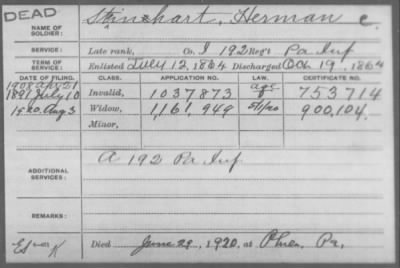 DEAD
NAME OF SOLDIER: Steinehart, Herman C.
SERVICE: Late rank, Co. I 192 Reg't Pa Inf
TERM OF SERVICE: Enlisted July 12, 1864 Discharged Oct. 19, 1864
DATE OF FILING. CLASS. APPLICATION NO. LAW. CERTIFICATE NO.
1908 Apr 21 age
1891 July 10 Invalid, 1037873 753714
1920. Aug 3 Widow, 1,161,949 5/1/20 900,104.
Minor,
ADDITIONAL SERVICES: A 192 Pa Inf
REMARKS:
Died June 29, 1920, at Phila, Pa.